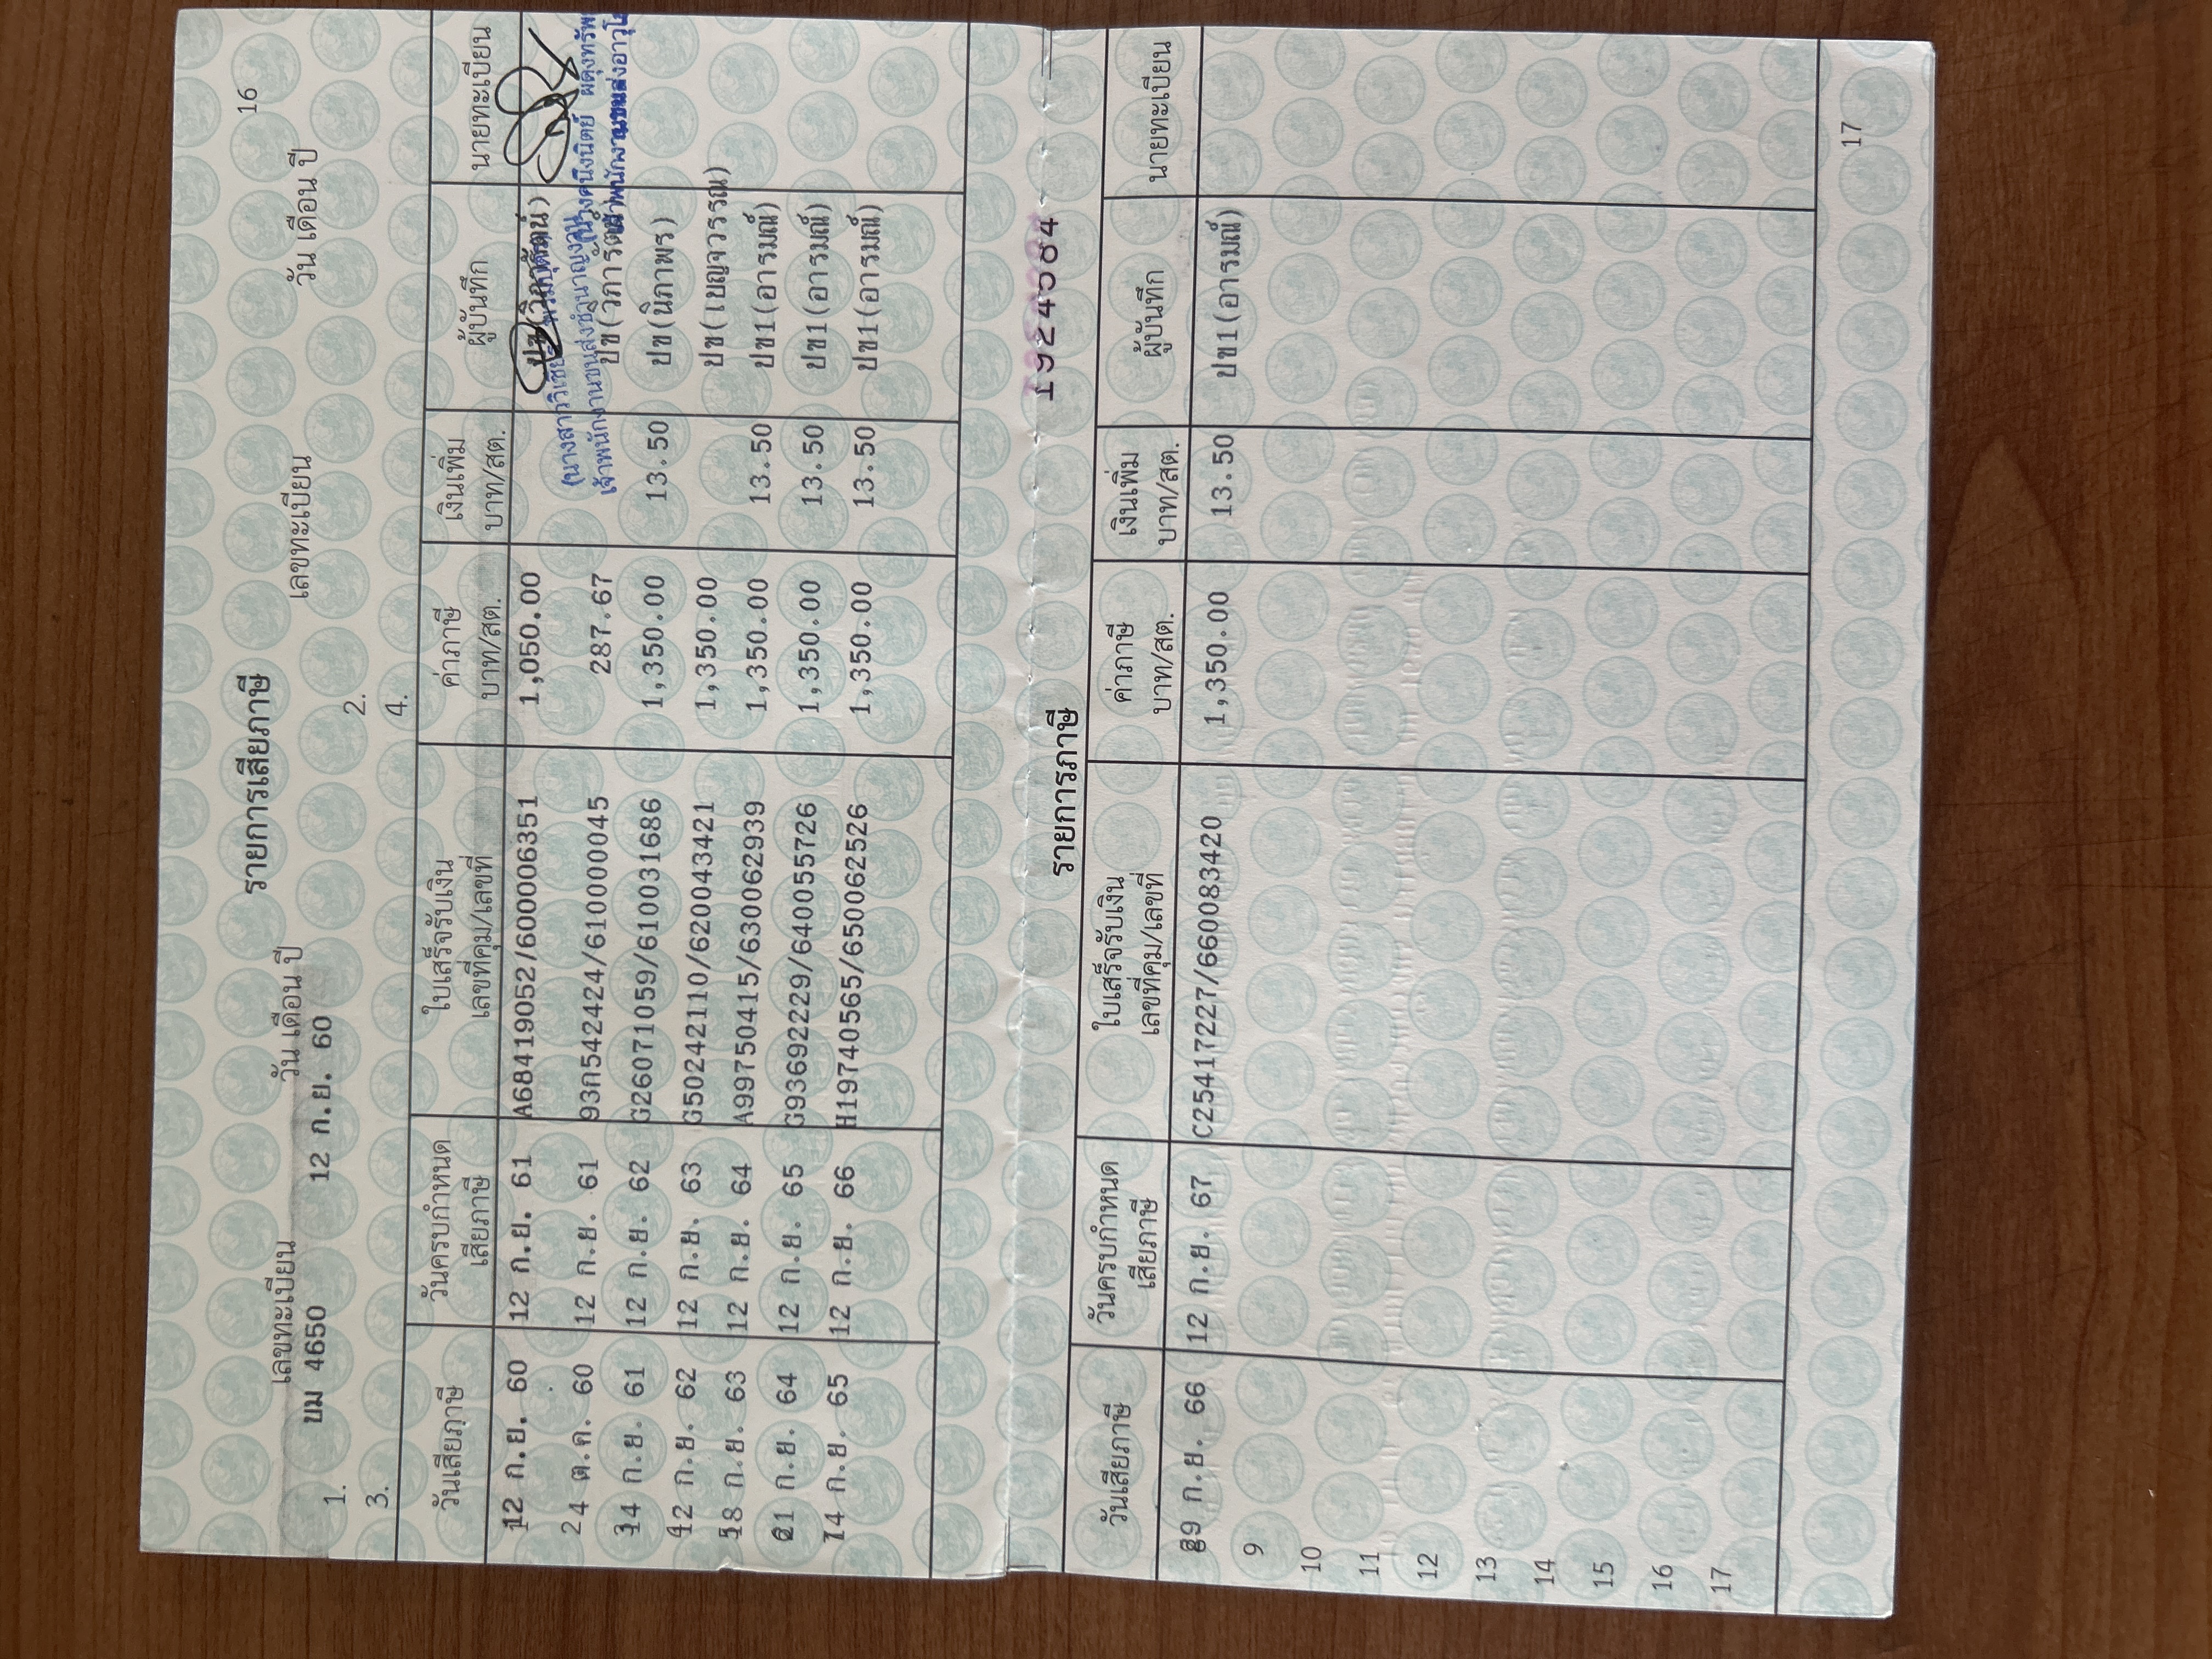 16
รายการเสียภาษี
เลขทะเบียน วัน เดือน ปี เลขทะเบียน วัน เดือน ปี
1. ขม 4650 12 ก.ย. 60 2.
3. 4.
วันเสียภาษี วันครบกำหนด เสียภาษี ใบเสร็จรับเงิน เลขที่คุม/เลขที่ ค่าภาษี บาท/สต. เงินเพิ่ม บาท/สต. ผู้บันทึก นายทะเบียน
12 ก.ย. 60 12 ก.ย. 61 A68419052/600006351 1,050.00 ปข(วิภารัตน์)
24 ต.ค. 60 12 ก.ย. 61 93ก542424/610000045 287.67 ปข(วิภารัตน์)
(นางสาววิเชีย
เจ้าพนักงานขนส่งชำนาญงาน
ผดุงทรัพ
เจ้าพนักงานขนส่งอาวุโส
14 ก.ย. 61 12 ก.ย. 62 G26071059/610031686 1,350.00 13.50 ปข(นิภาพร)
12 ก.ย. 62 12 ก.ย. 63 G50242110/620043421 1,350.00 ปข(เบญจวรรณ)
18 ก.ย. 63 12 ก.ย. 64 A99750415/630062939 1,350.00 13.50 ปข1(อารมณ์)
21 ก.ย. 64 12 ก.ย. 65 G93692229/640055726 1,350.00 13.50 ปข1(อารมณ์)
14 ก.ย. 65 12 ก.ย. 66 H19740565/650062526 1,350.00 13.50 ปข1(อารมณ์)
รายการภาษี
วันเสียภาษี วันครบกำหนด เสียภาษี ใบเสร็จรับเงิน เลขที่คุม/เลขที่ ค่าภาษี บาท/สต. เงินเพิ่ม บาท/สต. ผู้บันทึก นายทะเบียน
ก.ย. 66 12 ก.ย. 67 C25417227/660083420 1,350.00 13.50 ปข1(อารมณ์)
9
10
11
12
13
14
15
16
17
17